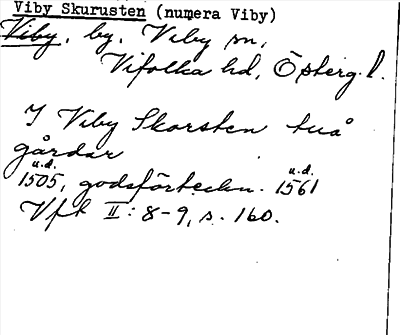 Viby Skurusten (numera Viby)
Viby, by, Viby sn,
Vifolka hd, Österg. l.
I Viby Skorsten två
gårdar
u.d. u.d.
1505, godsförteckn. 1561
Vfk II: 8-9, s. 160.